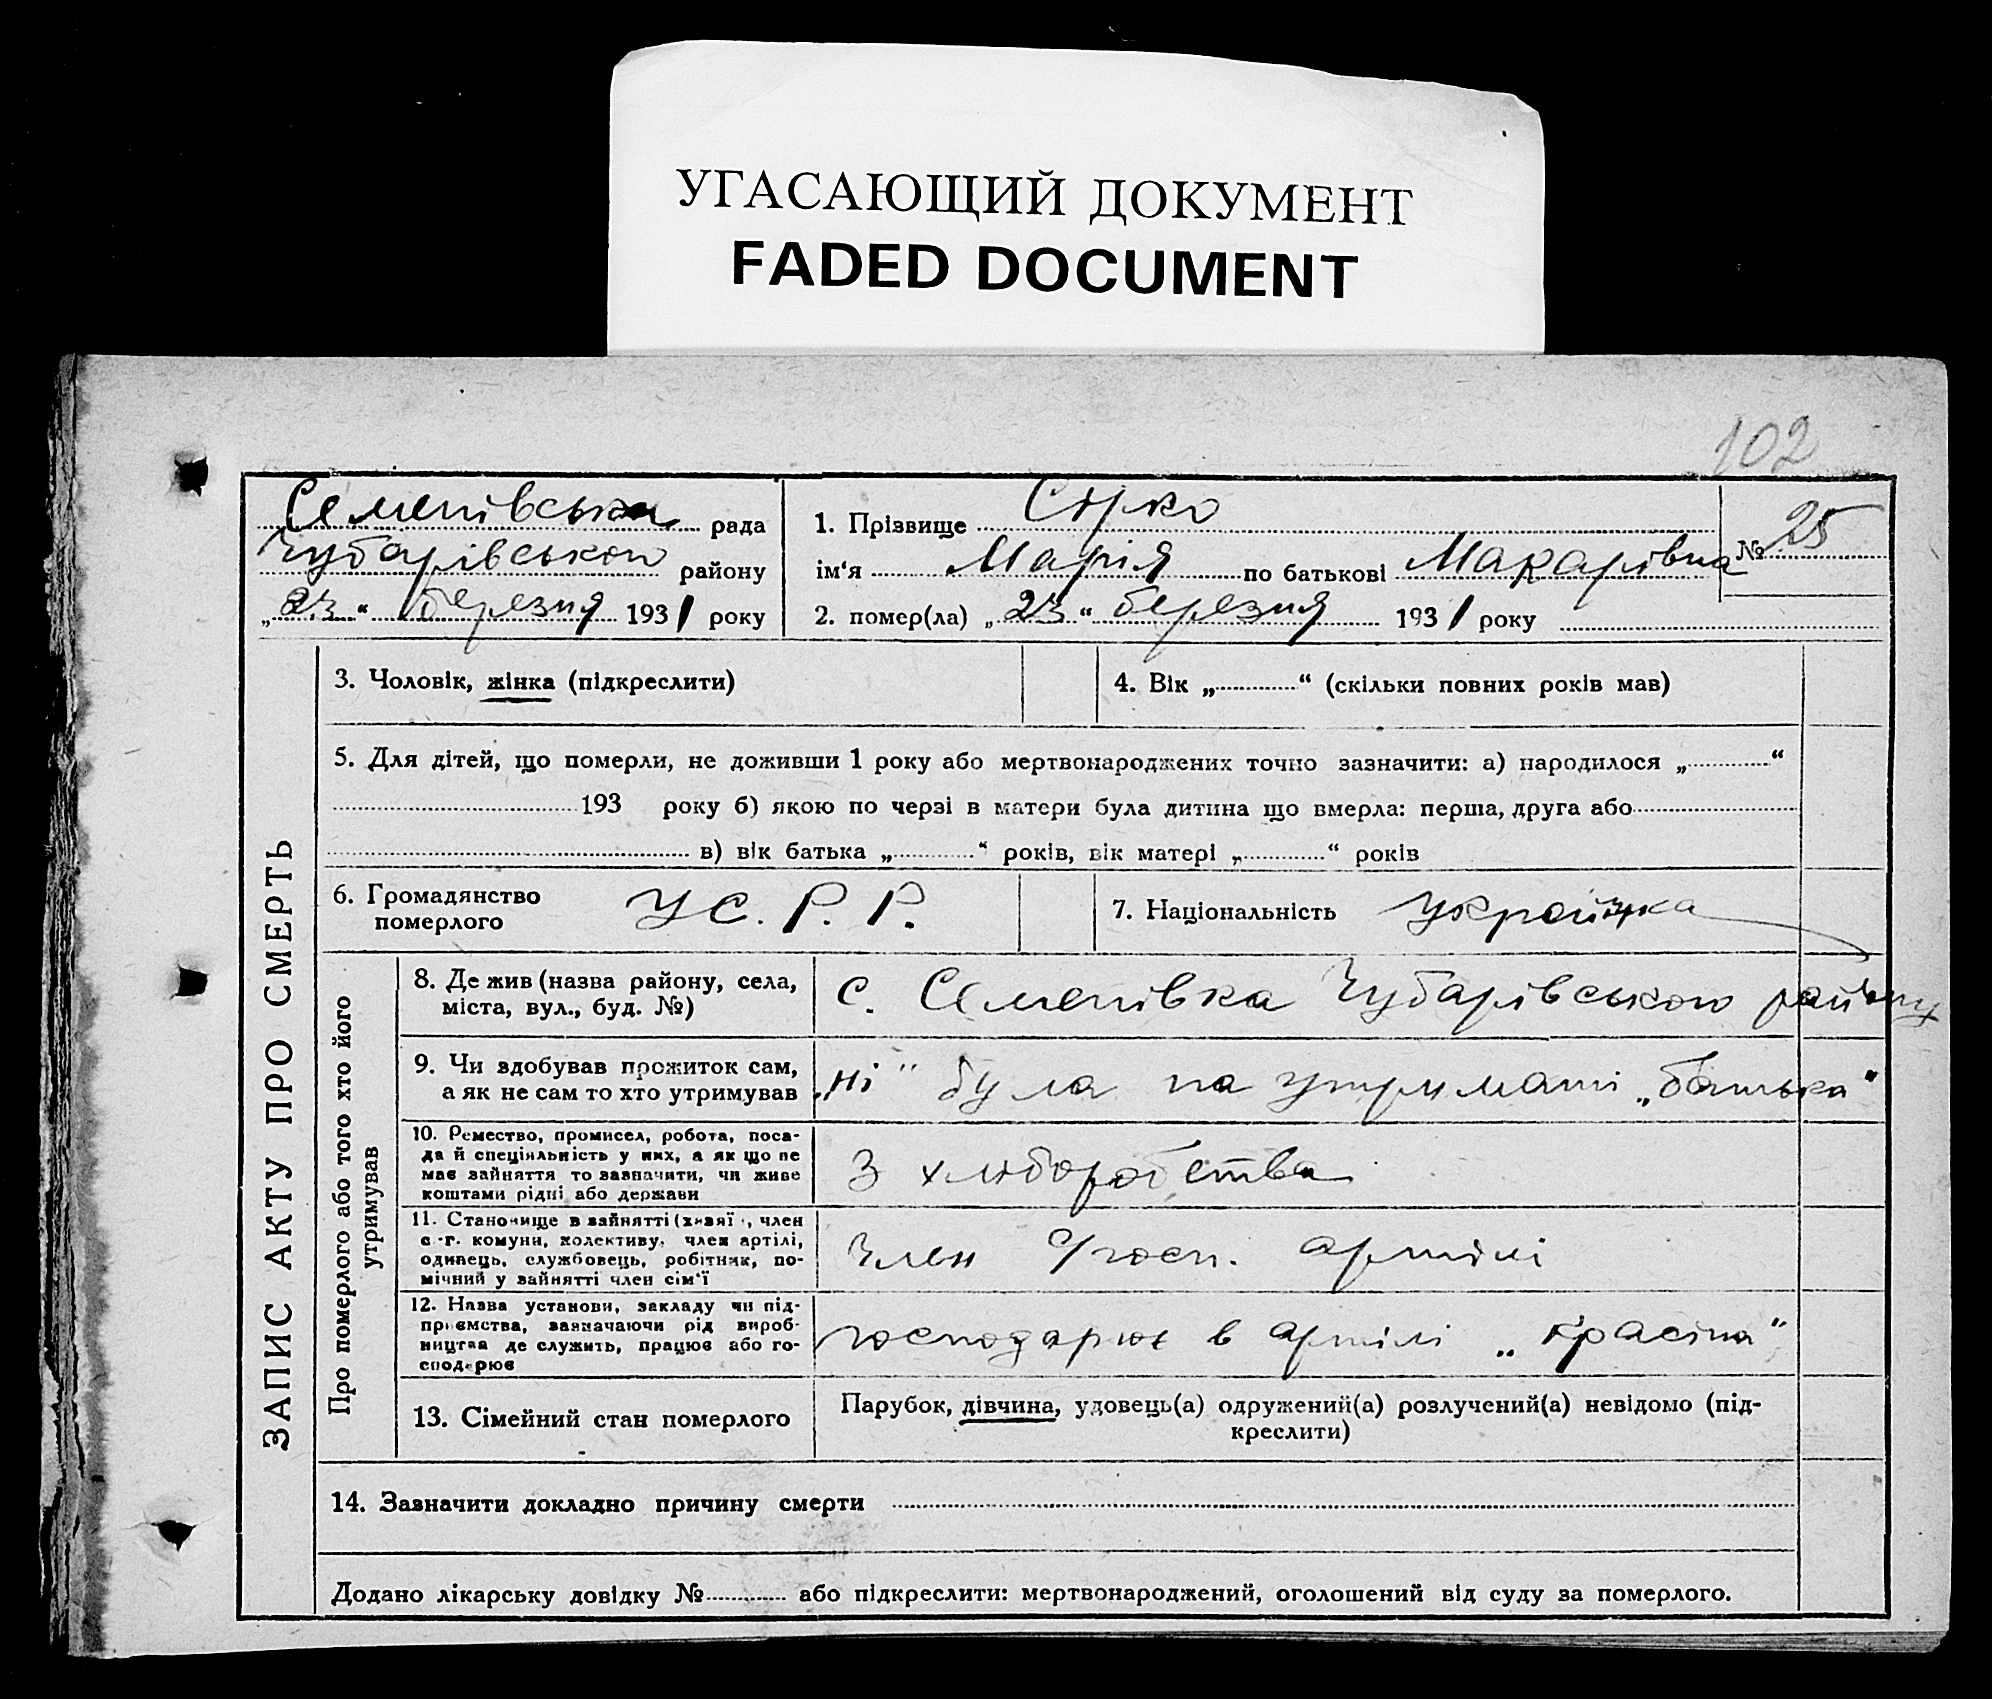 УГАСАЮЩИЙ ДОКУМЕНТ
FADED DOCUMENT
102
Семенівська рада
Чубарівського району
„23“ березня 1931 року
1. Прізвище Сірко
№ 25
ім‘я Марія по батькові Макарівна
2. помер(ла) „23“ березня 1931 року
ЗАПИС АКТУ ПРО СМЕРТЬ
3. Чоловік, жінка (підкреслити)
4. Вік „ “ (скільки повних років мав)
5. Для дітей, що померли, не доживши 1 року або мертвонароджених точно зазначити: а) народилося „ “
193 року б) якою по черзі в матери була дитина що вмерла: перша, друга або
в) вік батька „ “ років, вік матері „ “ років
6. Громадянство
померлого
У С. Р. Р.
7. Національність Українка
Про померлого або того хто його
утримував
8. Де жив (назва району, села,
міста, вул., буд. №)
с. Семенівка Чубарівського району
9. Чи здобував прожиток сам,
а як не сам то хто утримував
„ні“ була на утримані „батька“
10. Ремество, промисел, робота, поса-
да й спеціяльність у них, а як що не
має зайняття то зазначити, чи живе
коштами рідні або держави
З хліборобства
11. Становище в зайнятті (хазяї , член
с.-г. комуни, колективу, член артілі,
одинець, службовець, робітник, по-
мічний у зайнятті член сім‘ї
Член с/госп. артілі
12. Назва установи, закладу чи під-
приємства, зазначаючи рід вироб-
ництва де служить, працює або го-
сподарює
господарює в артілі „Красіна“
13. Сімейний стан померлого
Парубок, дівчина, удовець(а) одружений(а) розлучений(а) невідомо (під-
креслити)
14. Зазначити докладно причину смерти
Додано лікарську довідку № або підкреслити: мертвонароджений, оголошений від суду за померлого.